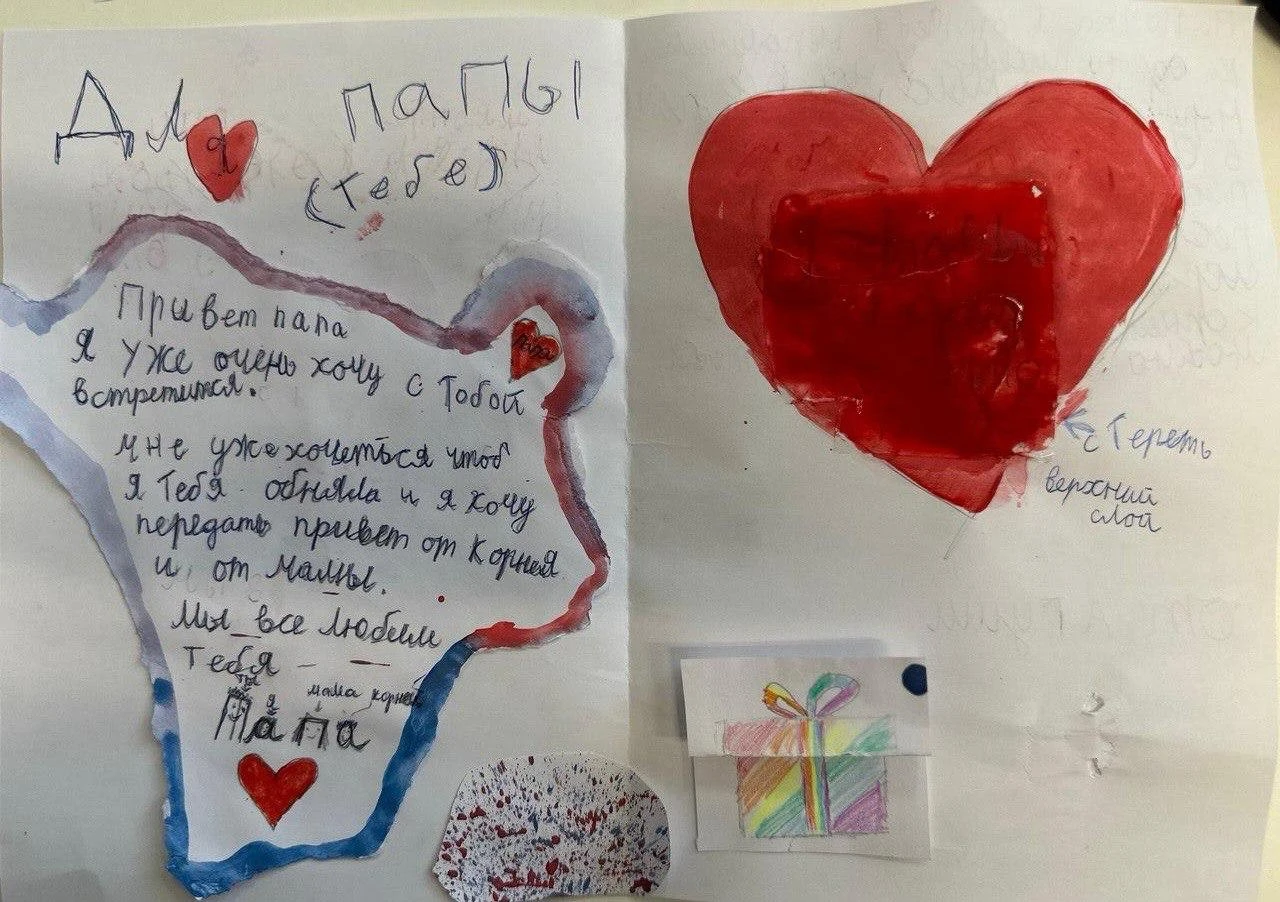 Для папы
(тебе)
Привет папа
Я уже очень хочу с тобой
встретится.
папа
мне уже хочеться чтоб
я тебя обняла и я хочу
передать привет от Корнея
и от мамы.
Мы все любим
тебя
ты
я
мама
корней
Папа
стереть
верхний
слой